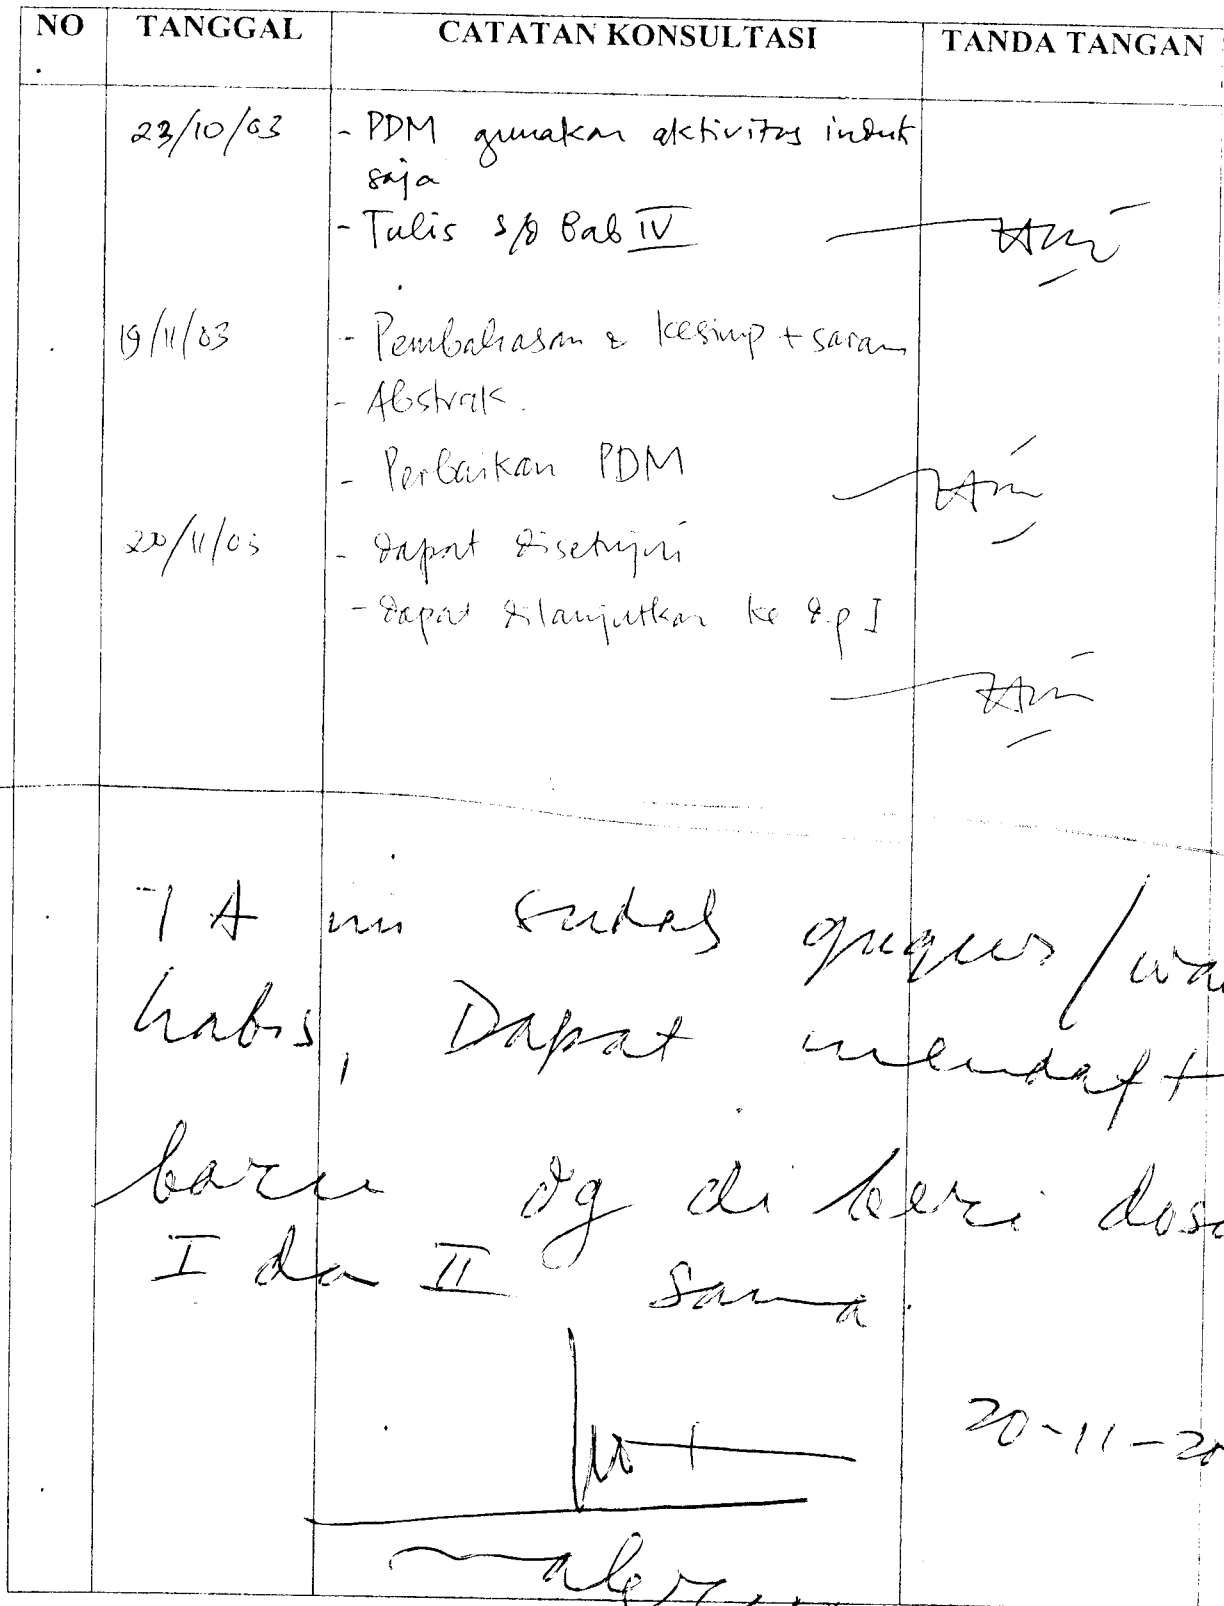 NO TANGGAL CATATAN KONSULTASI TANDA TANGAN
23/10/03 - PDM gunakan aktivitas induk
saja
- Tulis s/d Bab IV
19/11/03 - Pembahasan & kesimp + saran
- Abstrak.
- Perbaikan PDM
20/11/03 - dapat disetujui
- dapat dilanjutkan ke d.p I
TA ini sudah gugur/
habis, Dapat mendaft
baru dg di beri dos
I da II sama.
20-11-20